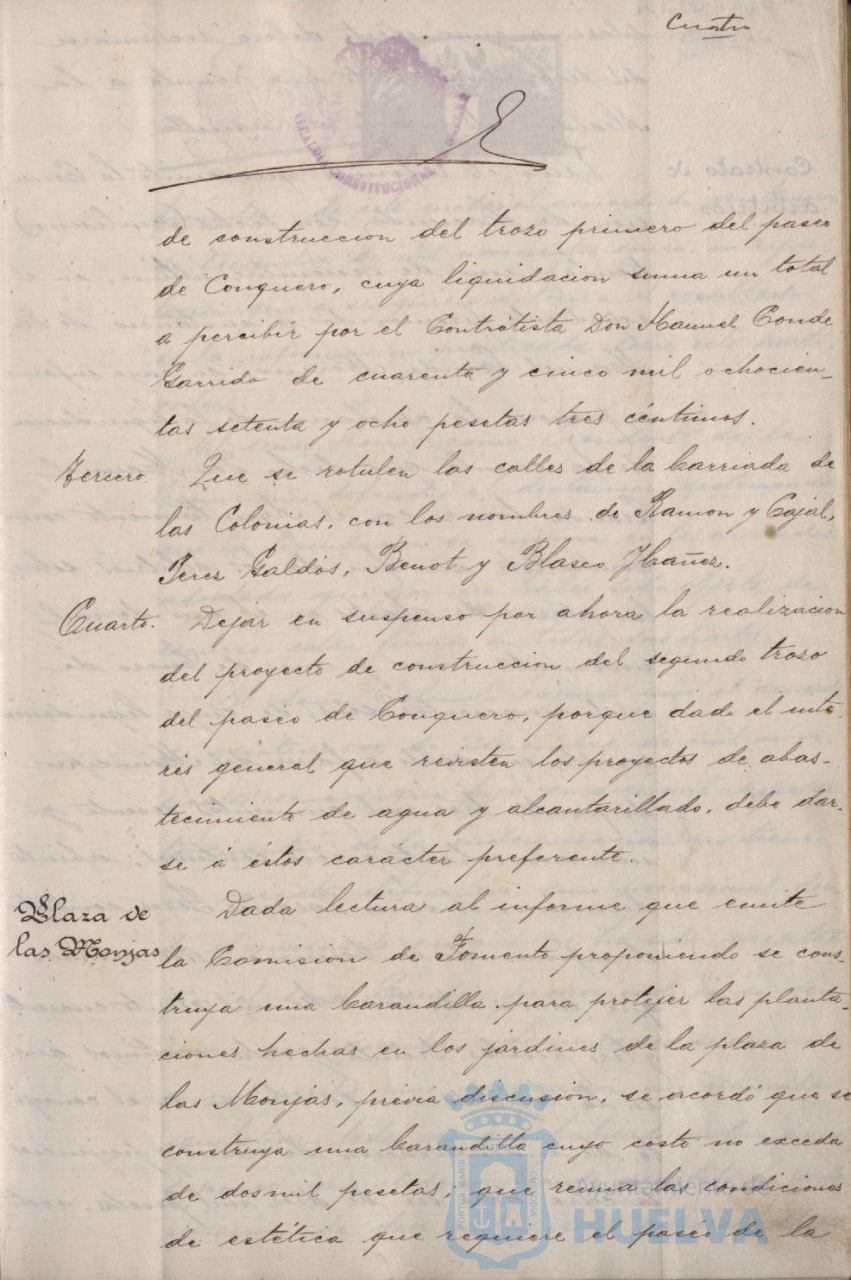 Cuatro
ALCALDIA CONSTITUCIONAL
de construccion del trozo primero del paseo
de Conquero, cuya liquidacion suma un total
á percibir por el Contratista Don Manuel Conde
Garrido de cuarenta y cinco mil ochocien-
tas setenta y ocho pesetas tres céntimos.
Tercero. Que se rotulen las calles de la barriada de
las Colonias, con los nombres de Ramon y Cajal,
Perez Galdós, Benot y Blasco Ybañez.
Cuarto. Dejar en suspenso por ahora la realizacion
del proyecto de construccion del segundo trozo
del paseo de Conquero, porque dado el inte-
rés general que revisten los proyectos de abas-
tecimiento de agua y alcantarillado, debe dar-
se á éstos carácter preferente.
Plaza de
las Monjas
Dada lectura al informe que emite
la Comisión de Fomento proponiendo se cons-
truya una barandilla para protejer las planta-
ciones hechas en los jardines de la plaza de
las Monjas, previa discusión, se acordó que se
construya una barandilla cuyo costo no exceda
de dosmil pesetas; que reuna las condiciones
de estética que requiere el paseo de la
Ayuntamiento de
HUELVA